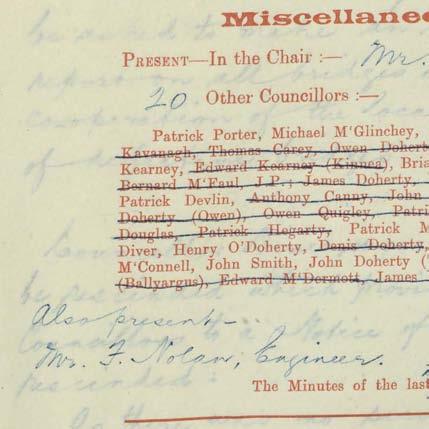 Miscellane
PRESENT—In the Chair :— Mr.
20 Other Councillors :—
Patrick Porter, Michael M'Glinchey,
Kavanagh, Thomas Carey, Owen Dohert
Kearney, Edward Kearney (Kinnea), Bria
Bernard M'Faul, J.P.; James Doherty,
Patrick Devlin, Anthony Canny, John
Doherty (Owen), Owen Quigley, Patri
Douglas, Patrick Hegarty, Patrick M
Diver, Henry O'Doherty, Denis Doherty,
M'Connell, John Smith, John Doherty (
(Ballyargus), Edward M'Dermott, James
Also present—
Mr. F. Nolan, Engineer.
The Minutes of the las